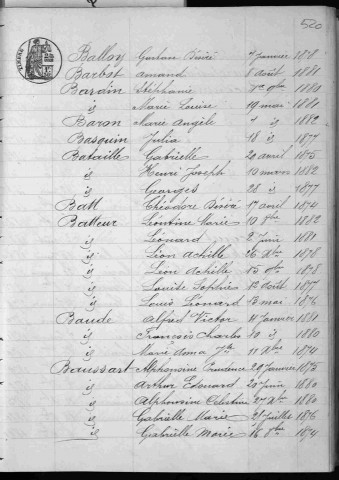 520
Balloy Gaston Désiré 7 Janvier 1878
Barbot Amand 8 Août 1881
Bardin Stéphanie 1880
id Marie Louise 19 mai 1881
Baron Marie Angèle 7 id 1882
Basquin Julia 18 id 1877
Bataille Gabrielle 20 avril 1875
id Henri Joseph 10 mars 1882
id Georges 28 id 1877
Batt Théodore Désiré 17 avril 1874
Batteur Léontine Marie 10 8bre 1882
id Léonard 2 Juin 1881
id Léon Achille 26 Xbre 1878
id Léon Achille 15 1878
id Louise Sophie 12 Août 1877
id Louis Léonard 13 mai 1876
Baude Alfred Victor 11 Janvier 1881
id François Charles 30 id 1880
id Marie 11 Xbre 1874
Baussart Alphonsine Prudence 29 Janvier 1875
id Arthur Edouard 20 Juin 1880
id Alphonsine Célestine 27 Xbre 1880
id Gabrielle Marie 21 Juillet 1876
id Gabrielle Marie 16 8bre 1874